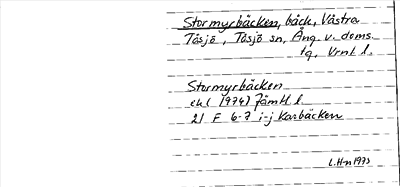 Stormyrbäcken, bäck, Västra
Tåsjö, Tåsjö sn, Ång. v. doms.
tg, Vrnl l.
Stormyrbäcken
ek (1974) Jämtl l
21 F 6-7 i-j Karbäcken
L.Hn 1973